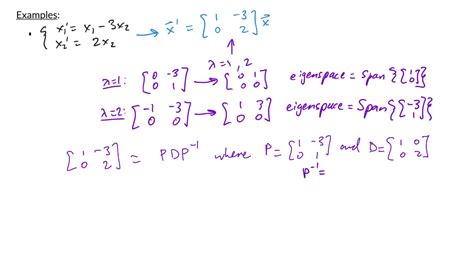 Examples:
• { x₁' = x₁ - 3x₂ → x⃗' = [1 -3; 0 2] x⃗
x₂' = 2x₂
λ=1, 2
λ=1: [0 -3; 0 1] → [0 1; 0 0] eigenspace = Span{[1; 0]}
λ=2: [-1 -3; 0 0] → [1 3; 0 0] eigenspace = Span{[-3; 1]}
[1 -3; 0 2] = PDP⁻¹ where P = [1 -3; 0 1] and D = [1 0; 0 2]
P⁻¹ =